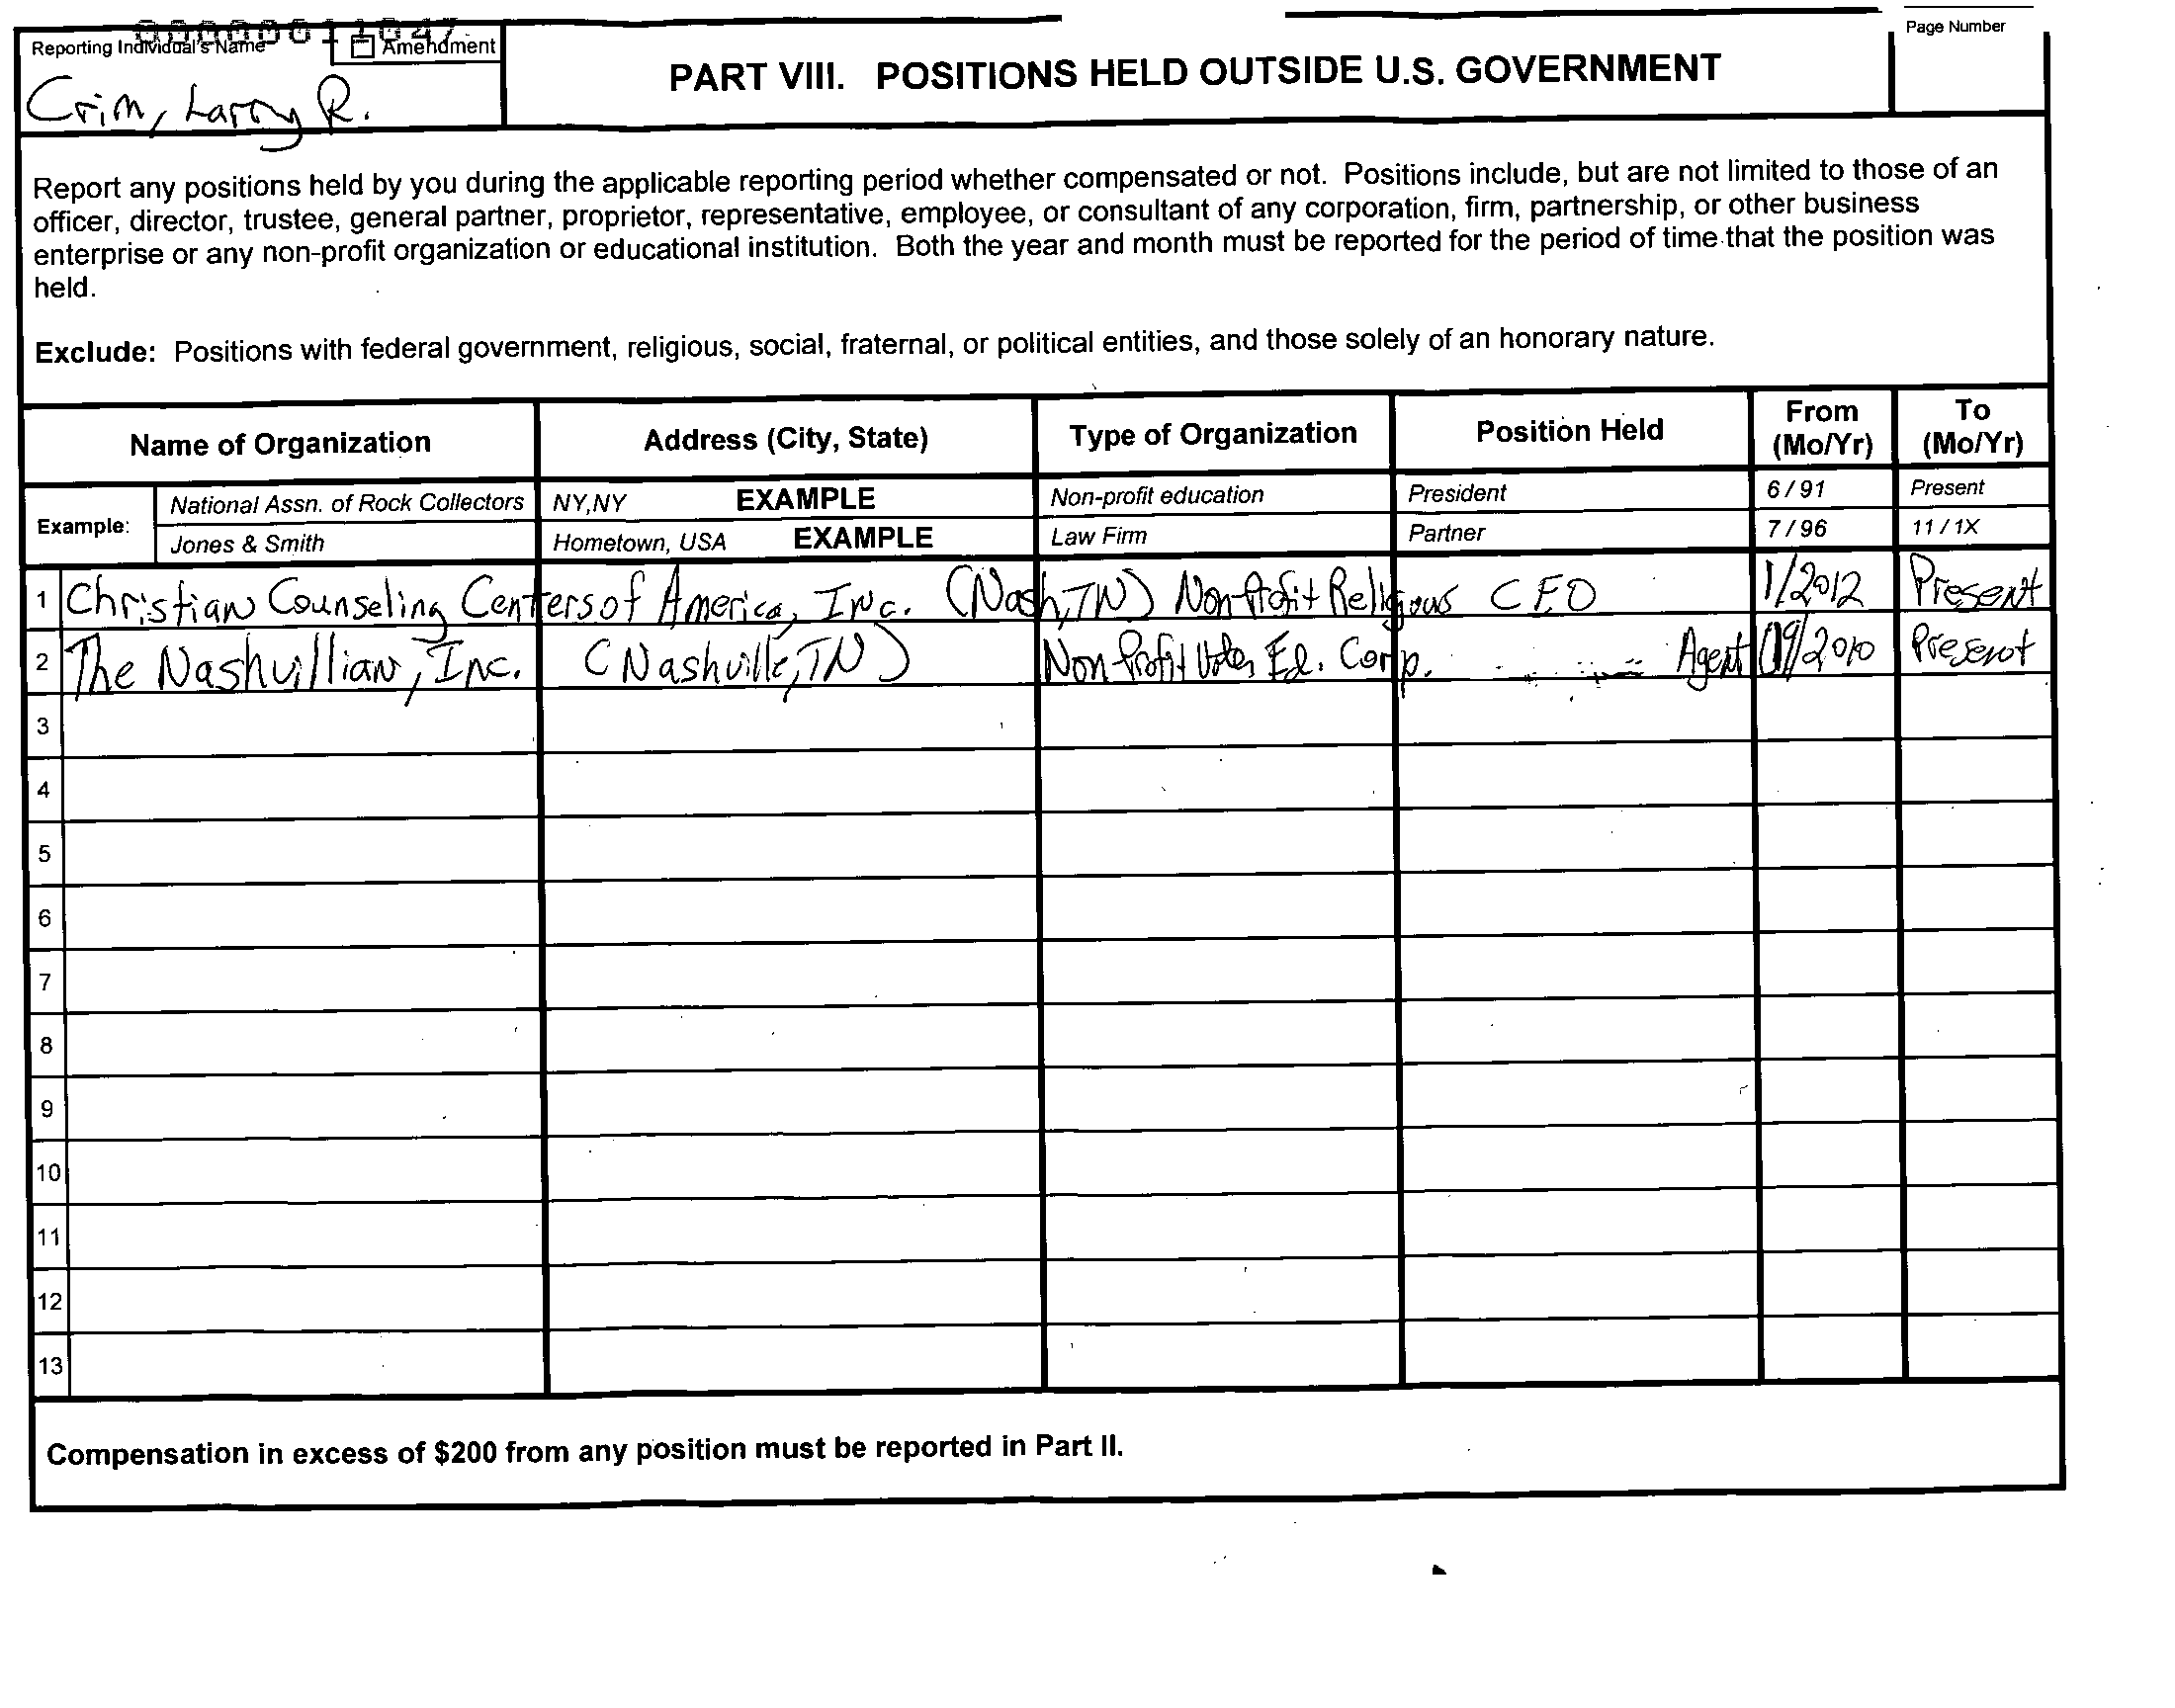 Reporting Individual's Name
Amendment
Page Number
PART VIII. POSITIONS HELD OUTSIDE U.S. GOVERNMENT
Crim, Larry R.
Report any positions held by you during the applicable reporting period whether compensated or not. Positions include, but are not limited to those of an
officer, director, trustee, general partner, proprietor, representative, employee, or consultant of any corporation, firm, partnership, or other business
enterprise or any non-profit organization or educational institution. Both the year and month must be reported for the period of time that the position was
held.
Exclude: Positions with federal government, religious, social, fraternal, or political entities, and those solely of an honorary nature.
Name of Organization Address (City, State) Type of Organization Position Held From (Mo/Yr) To (Mo/Yr)
Example: National Assn. of Rock Collectors NY,NY EXAMPLE Non-profit education President 6 / 91 Present
Jones & Smith Hometown, USA EXAMPLE Law Firm Partner 7 / 96 11 / 1X
1 Christian Counseling Centers of America, Inc. (Nash, TN) Non Profit Religious CEO 1/2012 Present
2 The Nashvillian, Inc. (Nashville, TN) Non Profit Voter Ed. Corp. Agent /2010 Present
3
4
5
6
7
8
9
10
11
12
13
Compensation in excess of $200 from any position must be reported in Part II.